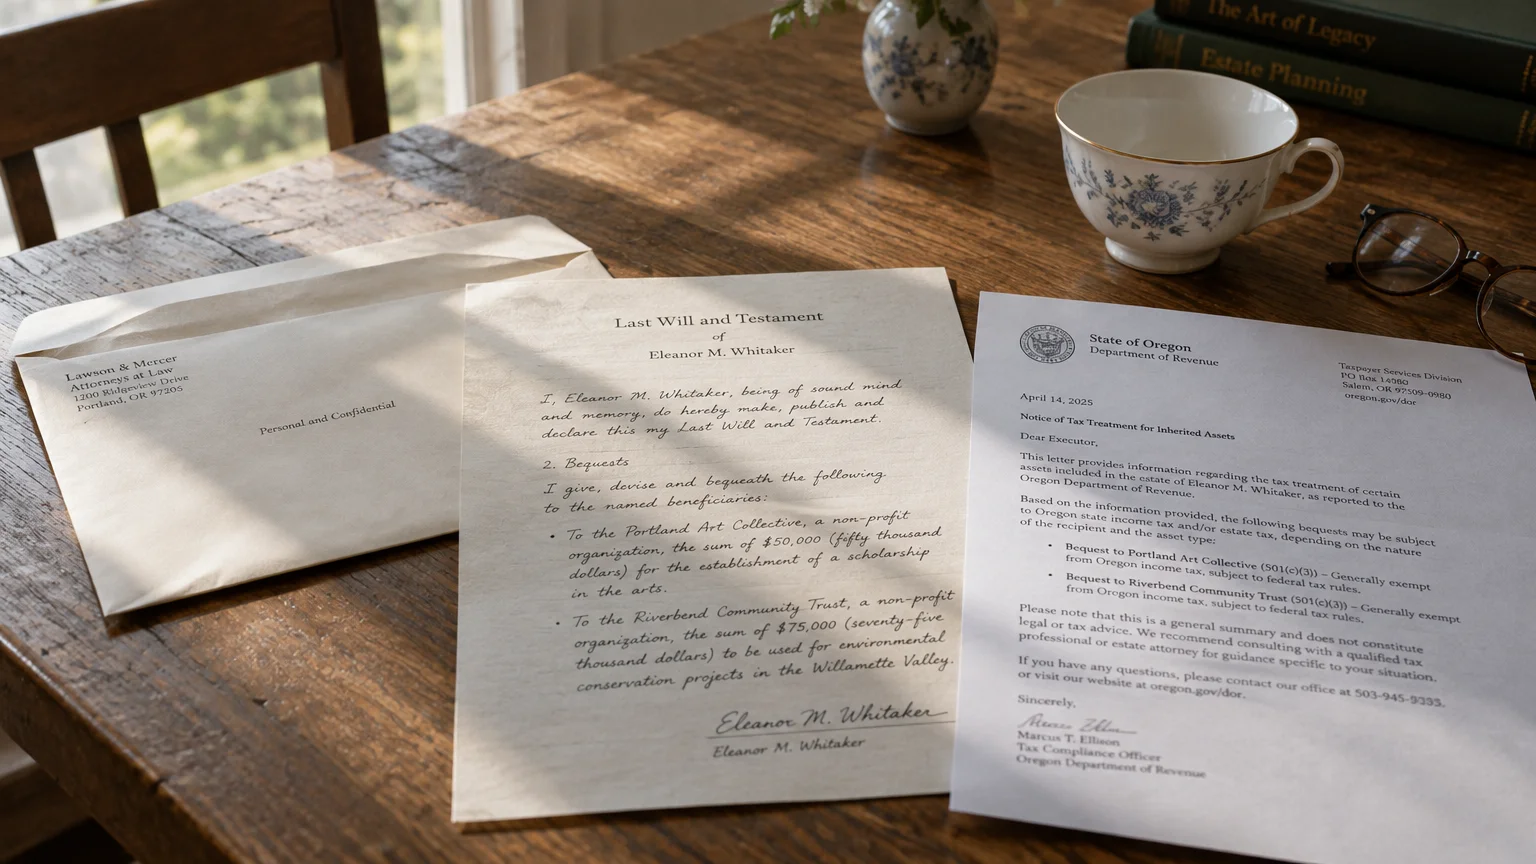 The Art of Legacy
Estate Planning
Lawson & Mercer
Attorneys at Law
1200 Ridgeview Drive
Portland, OR 97205
Personal and Confidential
Last Will and Testament
of
Eleanor M. Whitaker
I, Eleanor M. Whitaker, being of sound mind
and memory, do hereby make, publish and
declare this my Last Will and Testament.
2. Bequests
I give, devise and bequeath the following
to the named beneficiaries:
• To the Portland Art Collective, a non-profit
organization, the sum of $50,000 (fifty thousand
dollars) for the establishment of a scholarship
in the arts.
• To the Riverbend Community Trust, a non-profit
organization, the sum of $75,000 (seventy-five
thousand dollars) to be used for environmental
conservation projects in the Willamette Valley.
Eleanor M. Whitaker
Eleanor M. Whitaker
State of Oregon
Department of Revenue
Taxpayer Services Division
PO Box 14080
Salem, OR 97509-0980
oregon.gov/dor
April 14, 2025
Notice of Tax Treatment for Inherited Assets
Dear Executor,
This letter provides information regarding the tax treatment of certain
assets included in the estate of Eleanor M. Whitaker, as reported to the
Oregon Department of Revenue.
Based on the information provided, the following bequests may be subject
to Oregon state income tax and/or estate tax, depending on the nature
of the recipient and the asset type:
• Bequest to Portland Art Collective (501(c)(3)) – Generally exempt
from Oregon income tax, subject to federal tax rules.
• Bequest to Riverbend Community Trust (501(c)(3)) – Generally exempt
from Oregon income tax, subject to federal tax rules.
Please note that this is a general summary and does not constitute
legal or tax advice. We recommend consulting with a qualified tax
professional or estate attorney for guidance specific to your situation.
If you have any questions, please contact our office at 503-945-9393.
or visit our website at oregon.gov/dor.
Sincerely,
Marcus T. Ellison
Tax Compliance Officer
Oregon Department of Revenue